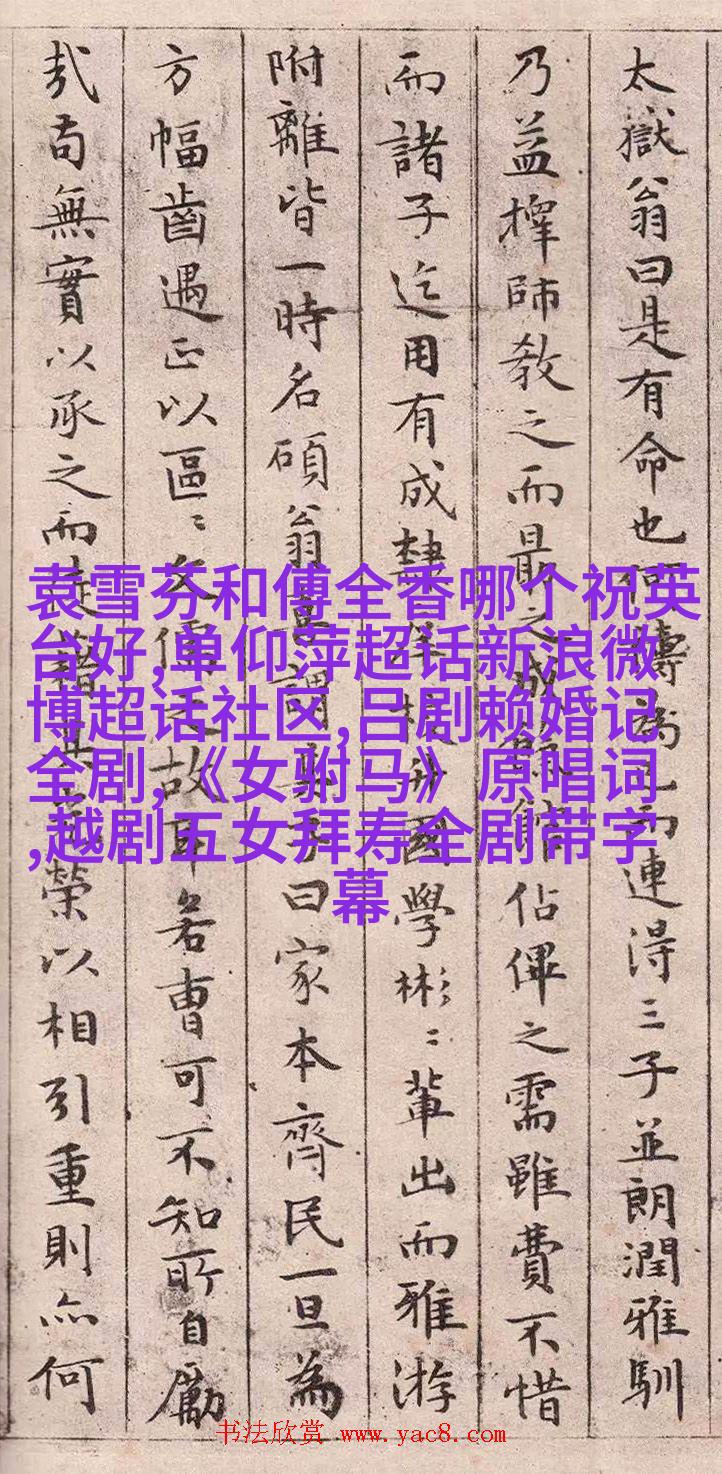 太嶽翁曰是有命也何
為之而連得三子並朗潤雅馴
乃益擇師教之而最之成
佔俾之需雖費不惜
而諸子迄用有成
國學彬〻輩出而雅游
附離皆一時名碩翁
謂
子曰家本齊民一旦為
方幅齒遇正以區〻文儒
故耳若曹可不知所自勵
哉苟無實以承之而
榮以相引重則亦何
袁雪芬和傅全香哪个祝英
台好,单仰萍超话新浪微
博超话社区,吕剧赖婚记
全剧,《女驸马》原唱词
,越剧五女拜寿全剧带字
幕
书法欣赏 www.yac8.com